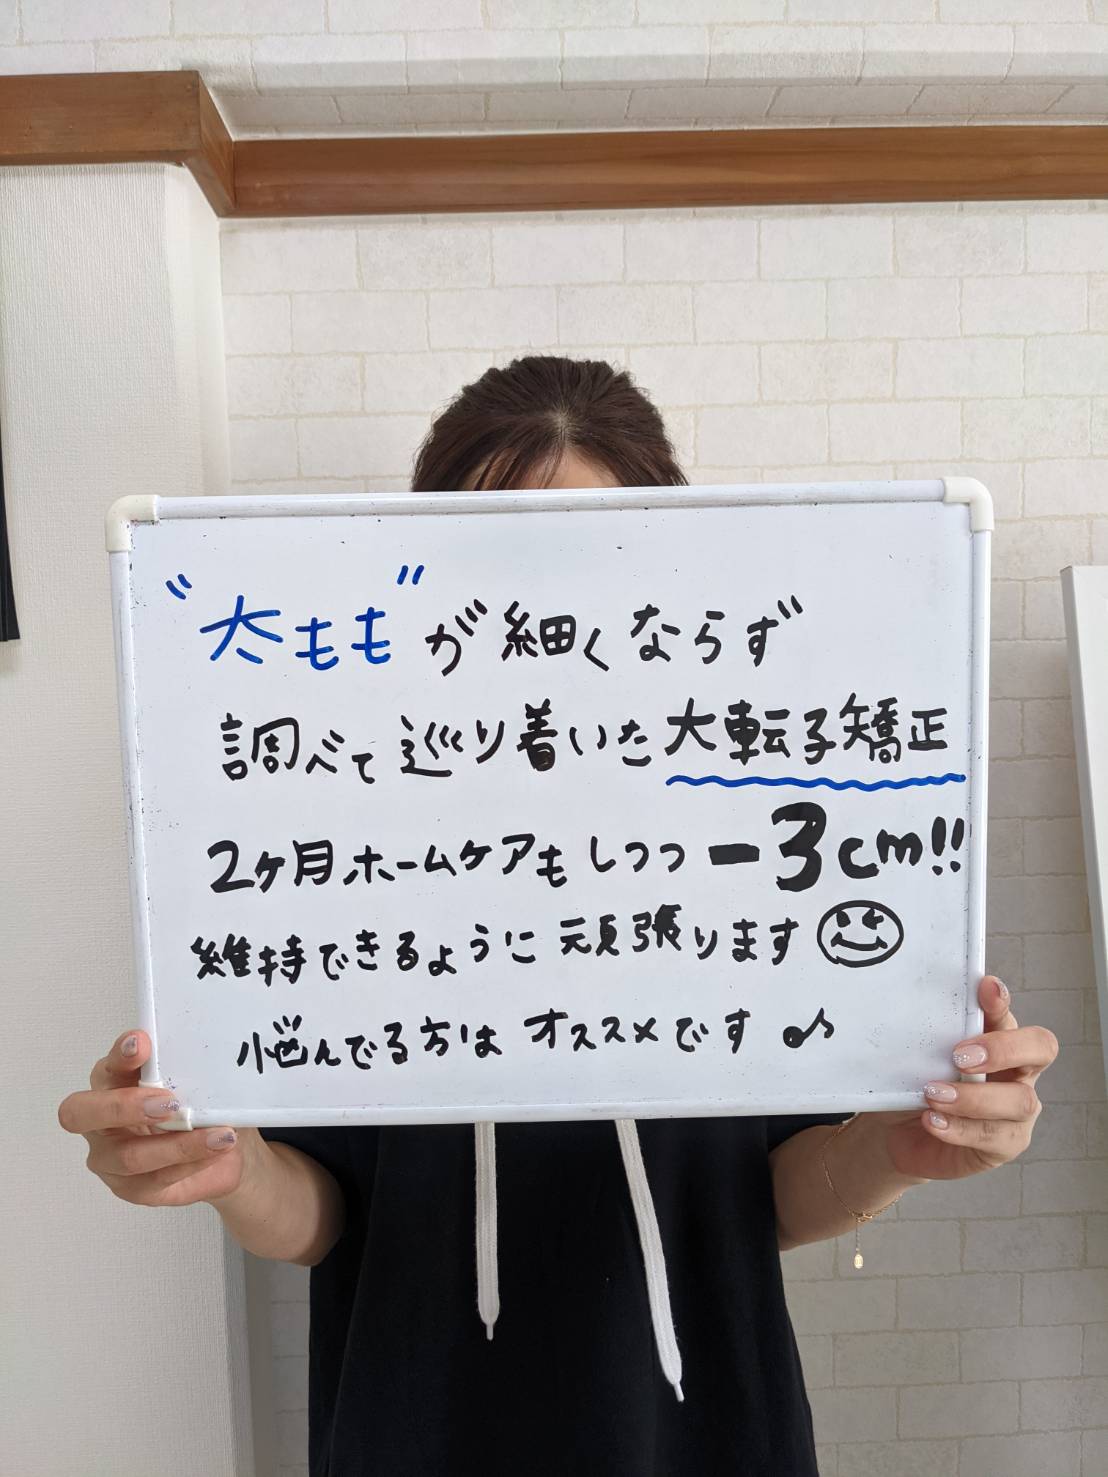 "太もも"が細くならず
調べて巡り着いた大転子矯正
2ヶ月ホームケアもしつつ -3cm!!
維持できるように頑張ります
悩んでる方は オススメです♪